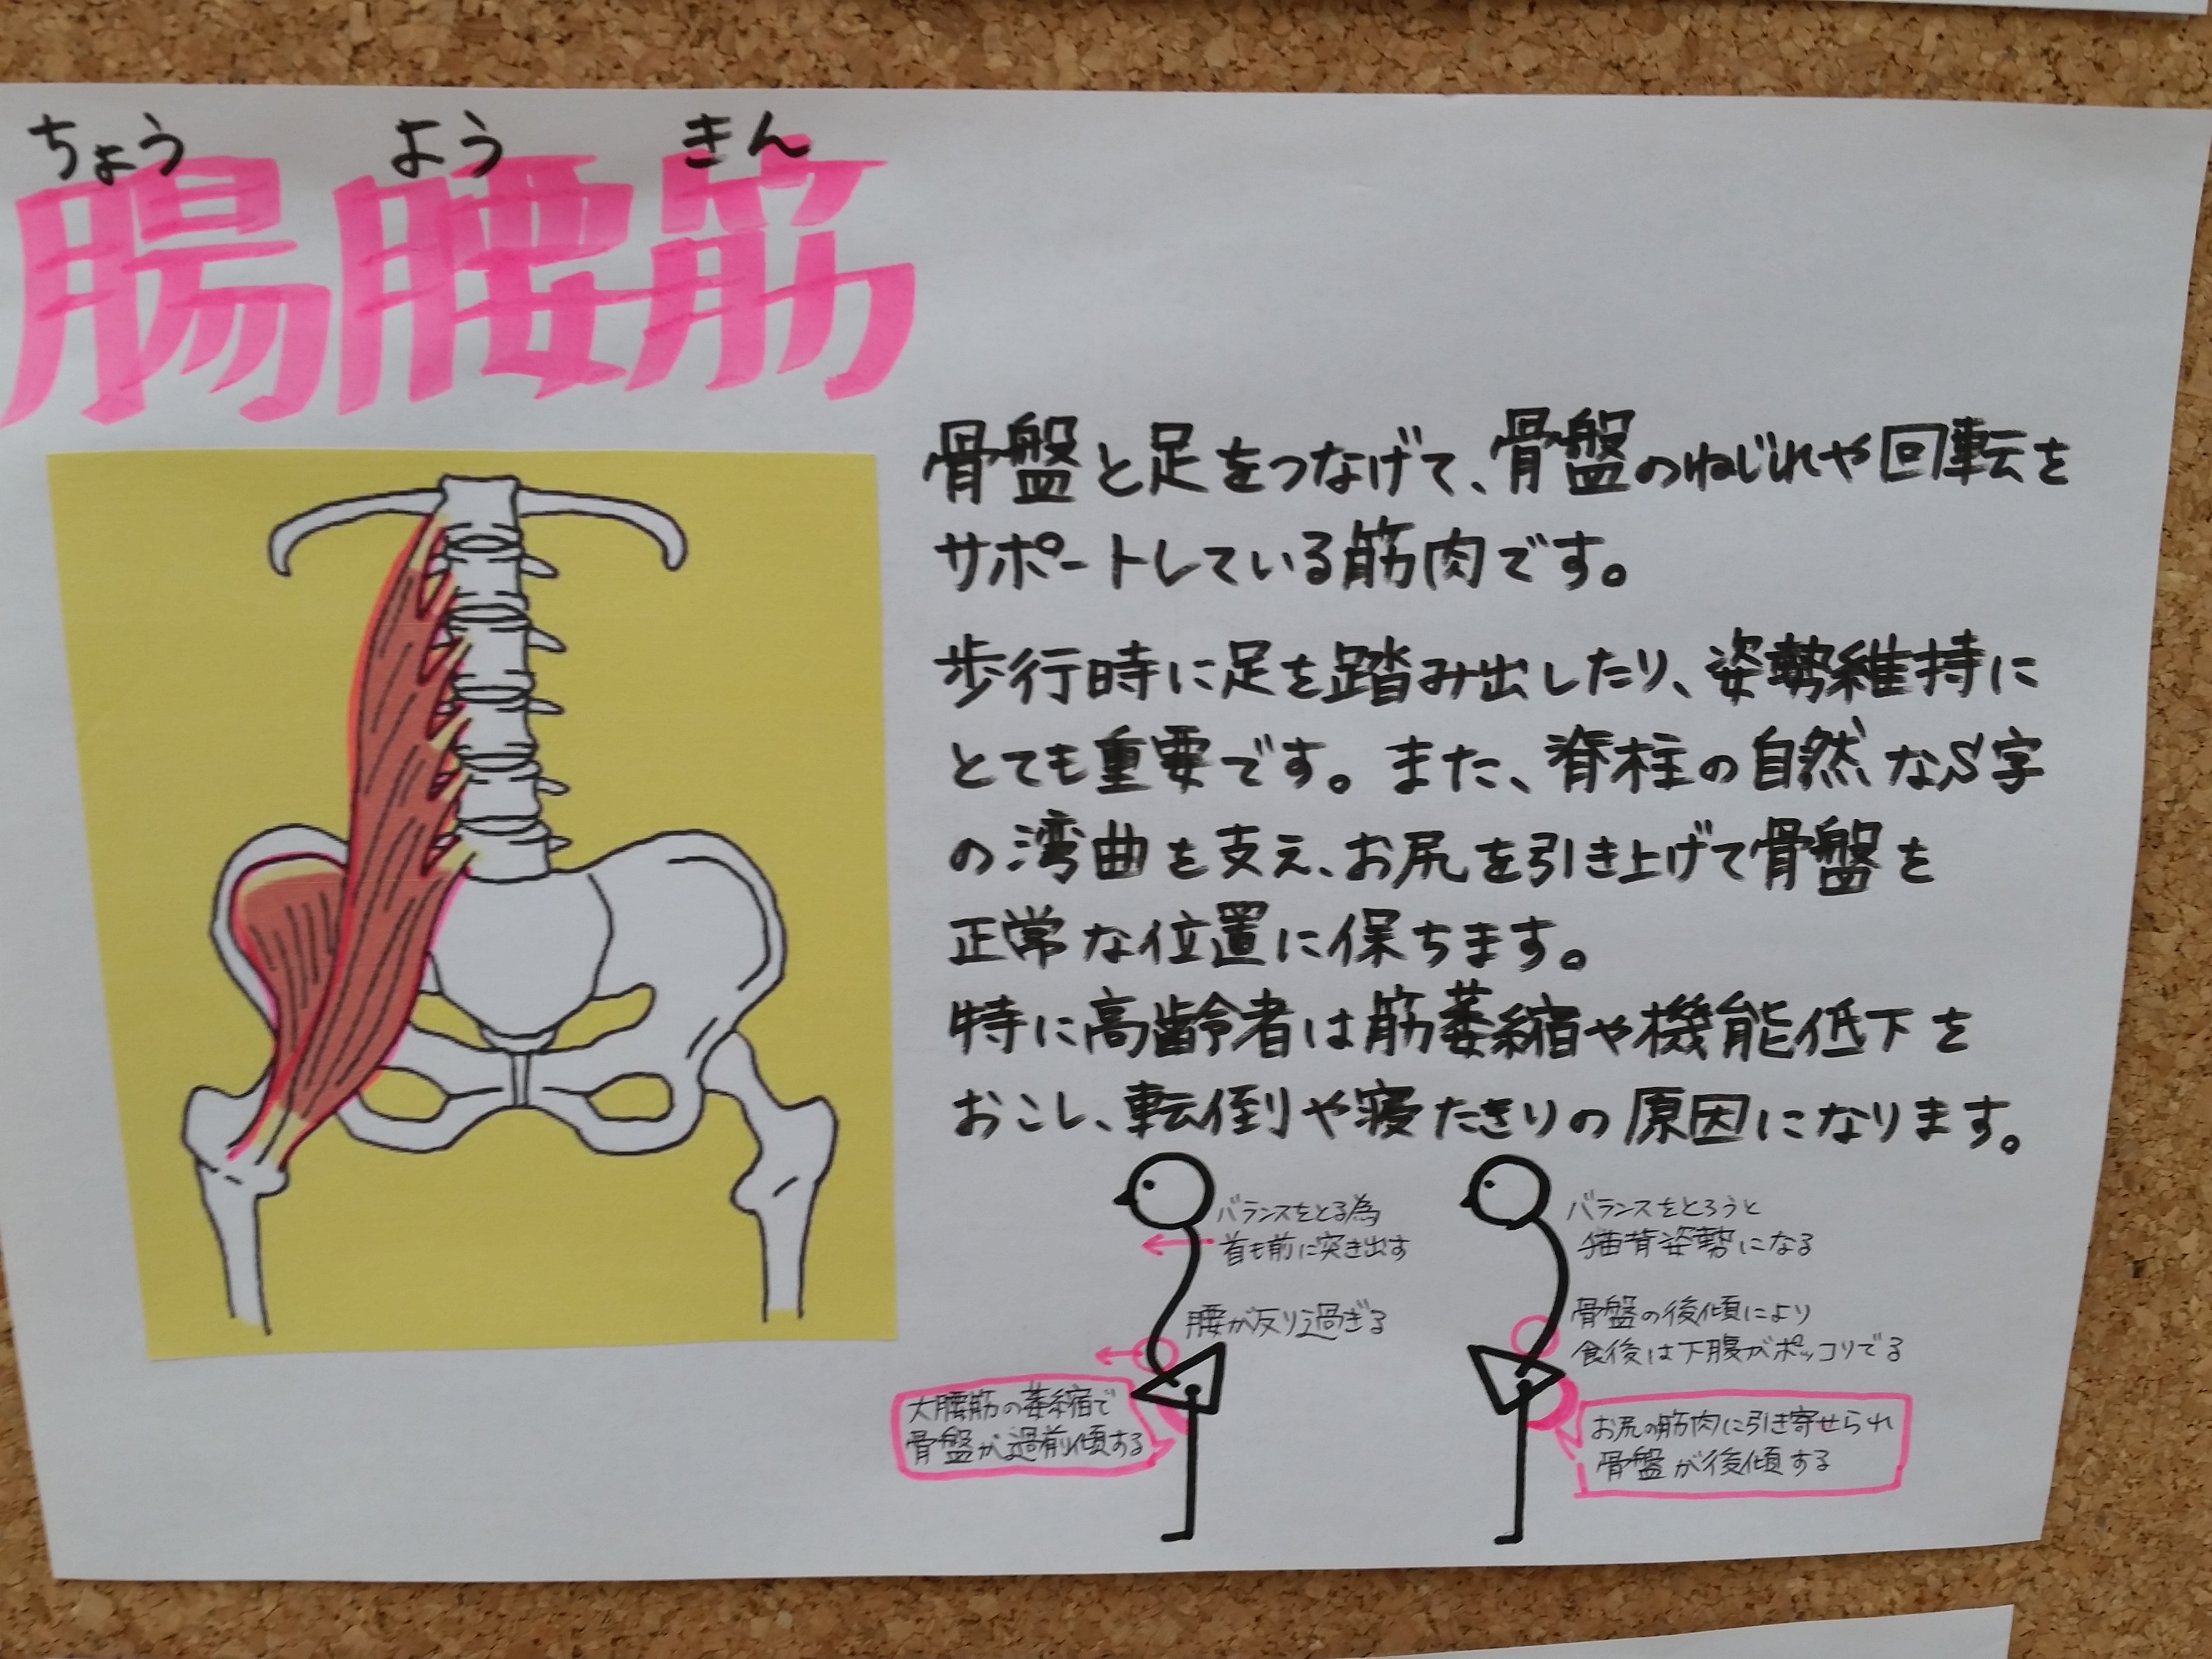 ちょう よう きん
腸腰筋
骨盤と足をつなげて、骨盤のねじれや回転を
サポートしている筋肉です。
歩行時に足を踏み出したり、姿勢維持に
とても重要です。また、脊柱の自然なS字
の湾曲を支え、お尻を引き上げて骨盤を
正常な位置に保ちます。
特に高齢者は筋萎縮や機能低下を
おこし、転倒や寝たきりの原因になります。
バランスをとる為
首も前に突き出す
腰が反り過ぎる
大腰筋の萎縮で
骨盤が過前傾する
バランスをとろうと
猫背姿勢になる
骨盤の後傾により
食後は下腹がポッコリでる
お尻の筋肉に引き寄せられ
骨盤が後傾する